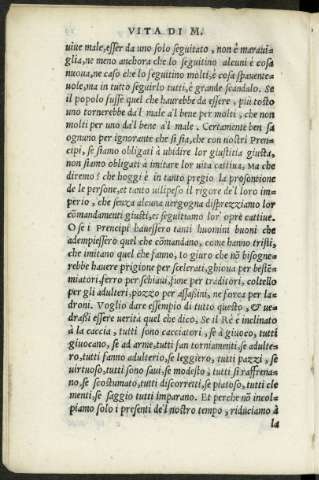 VITA DI M.
uiue male, esser da uno solo seguitato, non è maraui=
glia, ne meno anchora che lo seguitino alcuni è cosa
nuoua, ne caso che lo seguitino molti, è cosa spauente=
uole, ma in tutto seguirlo tutti, è grande scandalo. Se
il popolo fusse quel che haurebbe da essere, più tosto
uno tornerebbe da'l male a'l bene per molti, che non
molti per uno da'l bene a'l male. Certamente ben sa
ognuno per ignorante che si sia, che con nostri Pren=
cipi, se siamo obligati à ubidire lor giustitia giusta,
non siamo obligati à imitare lor uita cattiua, Ma che
diremo? che hoggi è in tanto pregio la prosontione
de le persone, et tanto uilipeso il rigore de'l loro im=
perio, che senza alcuna uergogna disprezziamo lor
cōmandamenti giusti, et seguitiamo lor' opre cattiue.
O se i Prencipi hauessero tanti huomini buoni che
adempiessero quel che cōmandano, come hanno tristi,
che imitano quel che fanno, Io giuro che nō bisogne=
rebbe hauere prigione per scelerati, ghioua per bestē=
miatori, ferro per schiaui, fune per traditori, coltello
per gli adulteri, pozzo per assassini, ne forca per la=
droni. Voglio dare essempio di tutto questo, & ue=
drassi essere uerità quel che dico. Se il Rè è inclinato
à la caccia, tutti sono cacciatori, se à giuoco, tutti
giuocano, se ad arme, tutti fan torniamenti, se adulte=
ro, tutti fanno adulterio, se leggiero, tutti pazzi, se
uirtuoso, tutti sono saui, se modesto, tutti si raffrena=
no, se scostumato, tutti discorretti, se piatoso, tutti cle
menti, se saggio tutti imparano. Et perche nō incol=
piamo solo i presenti de'l nostro tempo, riduciamo à
la